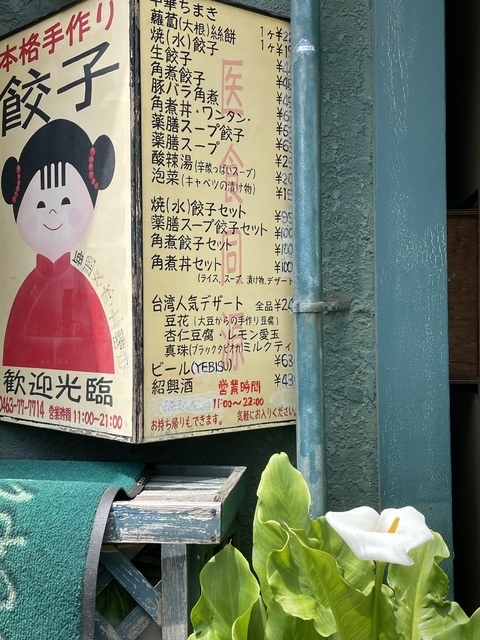 本格手作り
餃子
歓迎光臨
0463-77-7714 営業時間 11:00~21:00
中華ちまき
蘿蔔(大根)絲餅 1ヶ¥2
焼(水)餃子 1ヶ¥1
生餃子
角煮餃子
豚バラ角煮
角煮丼・ワンタン・
薬膳スープ餃子
薬膳スープ
酸辣湯(辛酸っぱいスープ)
泡菜(キャベツの漬け物)
焼(水)餃子セット
薬膳スープ餃子セット
角煮餃子セット
角煮丼セット
(ライス、スープ、漬け物、デザート
台湾人気デザート 全品¥2
豆花(大豆からの手作り豆腐)
杏仁豆腐・レモン愛玉
真珠(ブラックタピオカ)ミルクティ
ビール(YEBISU)
紹興酒
医食同源
営業時間
11:00~22:00
お持ち帰りもできます。 気軽にお入りください